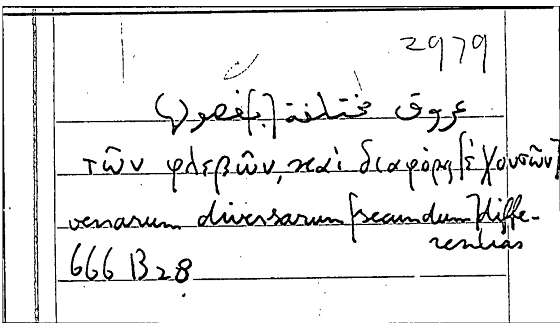 2979
عروق مختلفة [بـ]فصولها
τῶν φλεβῶν, καὶ διαφορὰς [ἐχουσῶν]
venarum diversarum [secundum] diffe-
rentias
666 B 28